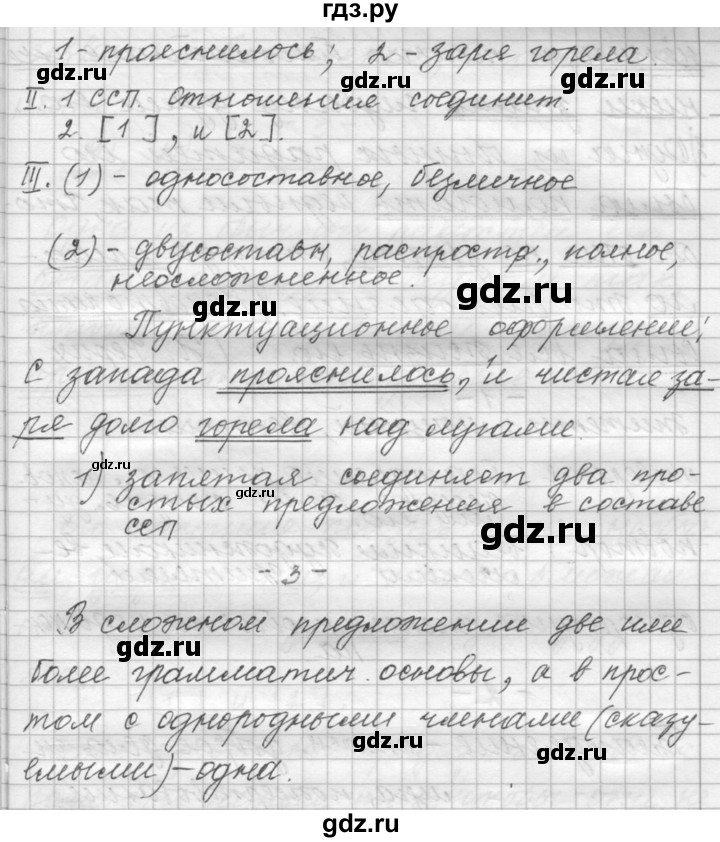 гдз.ру
1 - прояснилось; 2 - заря горела.
gdz.ru gdz.ru
II. 1 ССП. Отношения соединит.
2. [1], и [2].
gdz.ru
III. (1) - односоставное, безличное
(2) - двусоставн, распростр., полное,
неосложненное.
gdz.ru gdz.ru
Пунктуационное оформление:
С запада прояснилось, и чистая за-
ря долго горела над лугами.
gdz.ru
1) запятая соединяет два про-
стых предложения в составе
ССП
gdz.ru gdz.ru
- 3 -
В сложном предложении две или
gdz.ru
более грамматич. основы, а в прос-
том с однородными членами (сказу-
gdz.ru
емыми) - одна.
gdz.ru